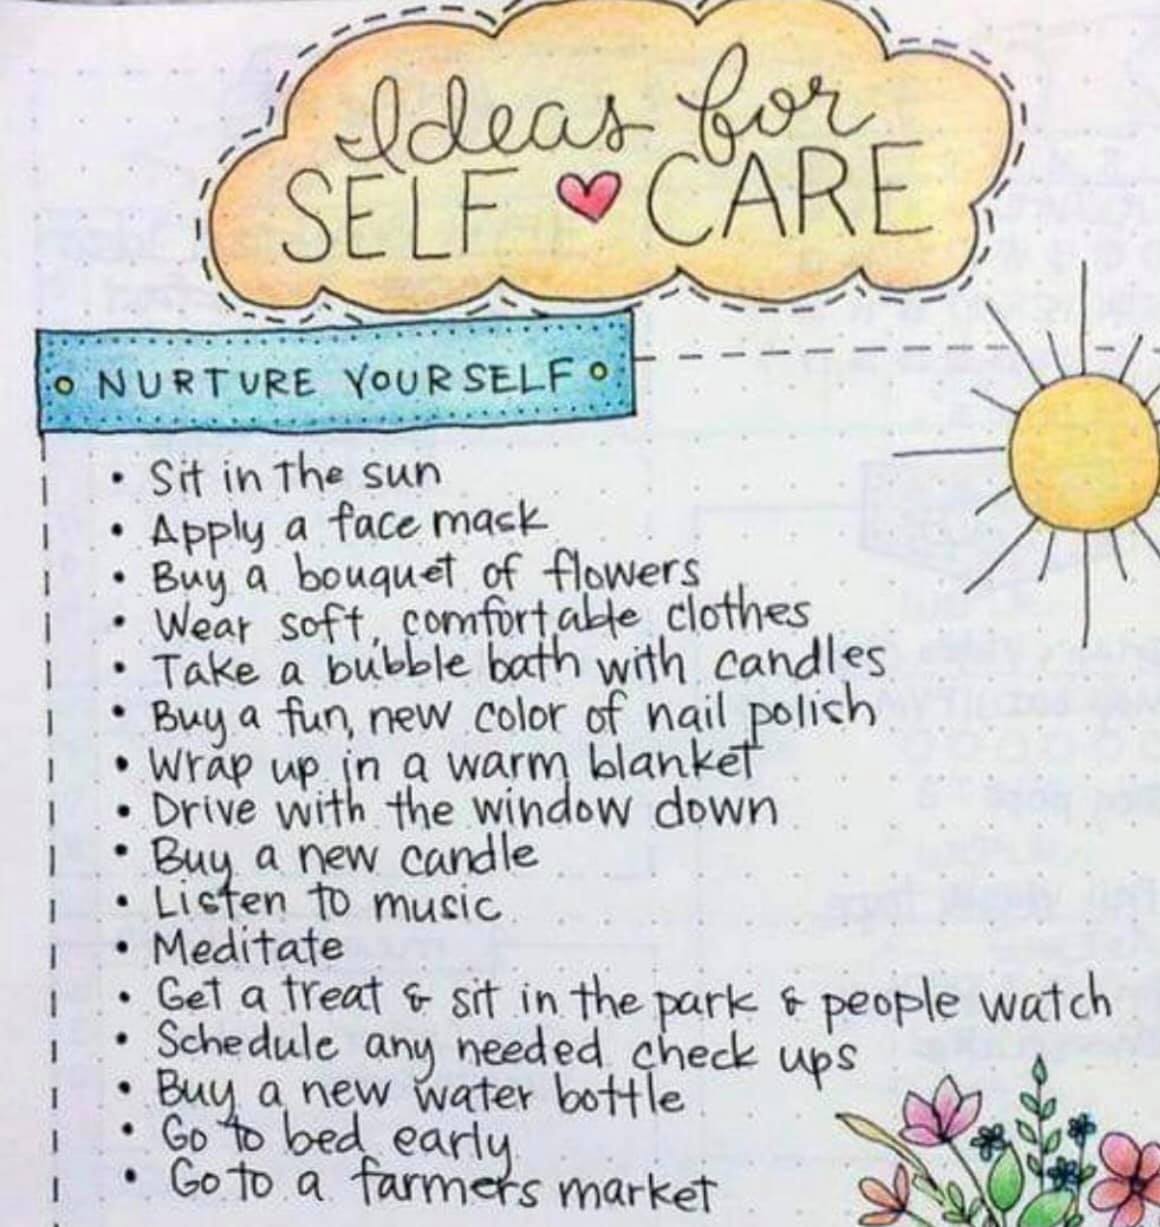 Ideas for
SELF CARE
NURTURE YOURSELF
• Sit in the sun
• Apply a face mask
• Buy a bouquet of flowers
• Wear soft, comfortable clothes
• Take a bubble bath with candles
• Buy a fun, new color of nail polish
• Wrap up in a warm blanket
• Drive with the window down
• Buy a new candle
• Listen to music
• Meditate
• Get a treat & sit in the park & people watch
• Schedule any needed check ups
• Buy a new water bottle
• Go to bed early
• Go to a farmers market